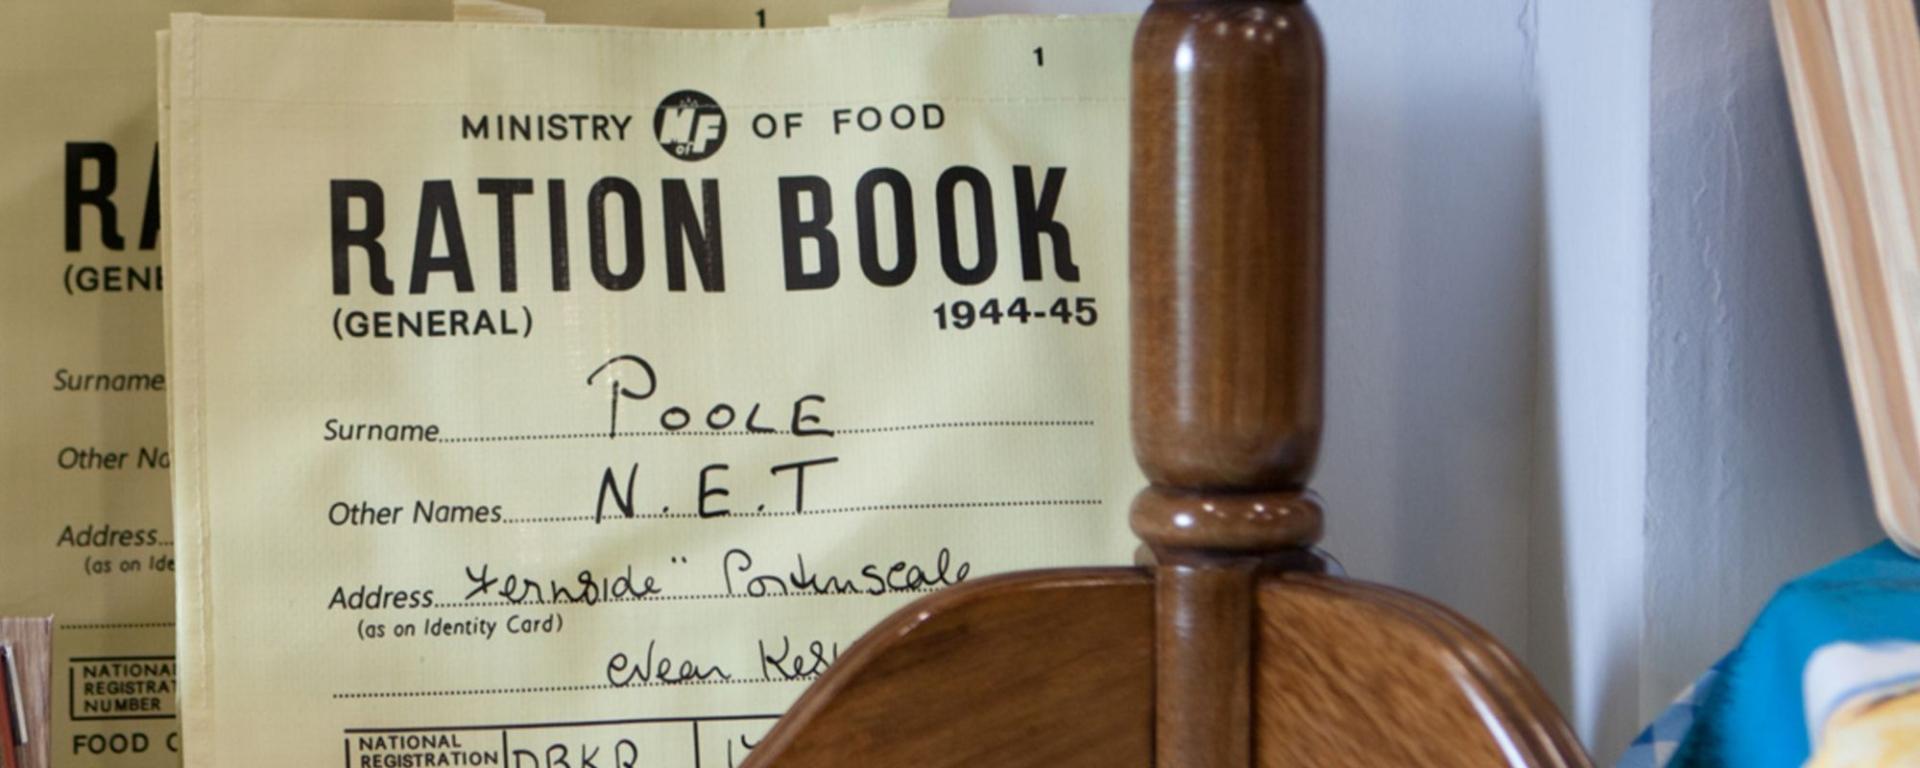 1
1
MINISTRY MoF OF FOOD
RATION BOOK
(GENERAL) 1944-45
Surname POOLE
Other Names N.E.T
Address Fernside" Portinscale
(as on Identity Card)
Near
NATIONAL
REGISTRATION DBKR
(GENE
Surname
Other
Address
(as on
NATIONAL
NUMBER
FOOD